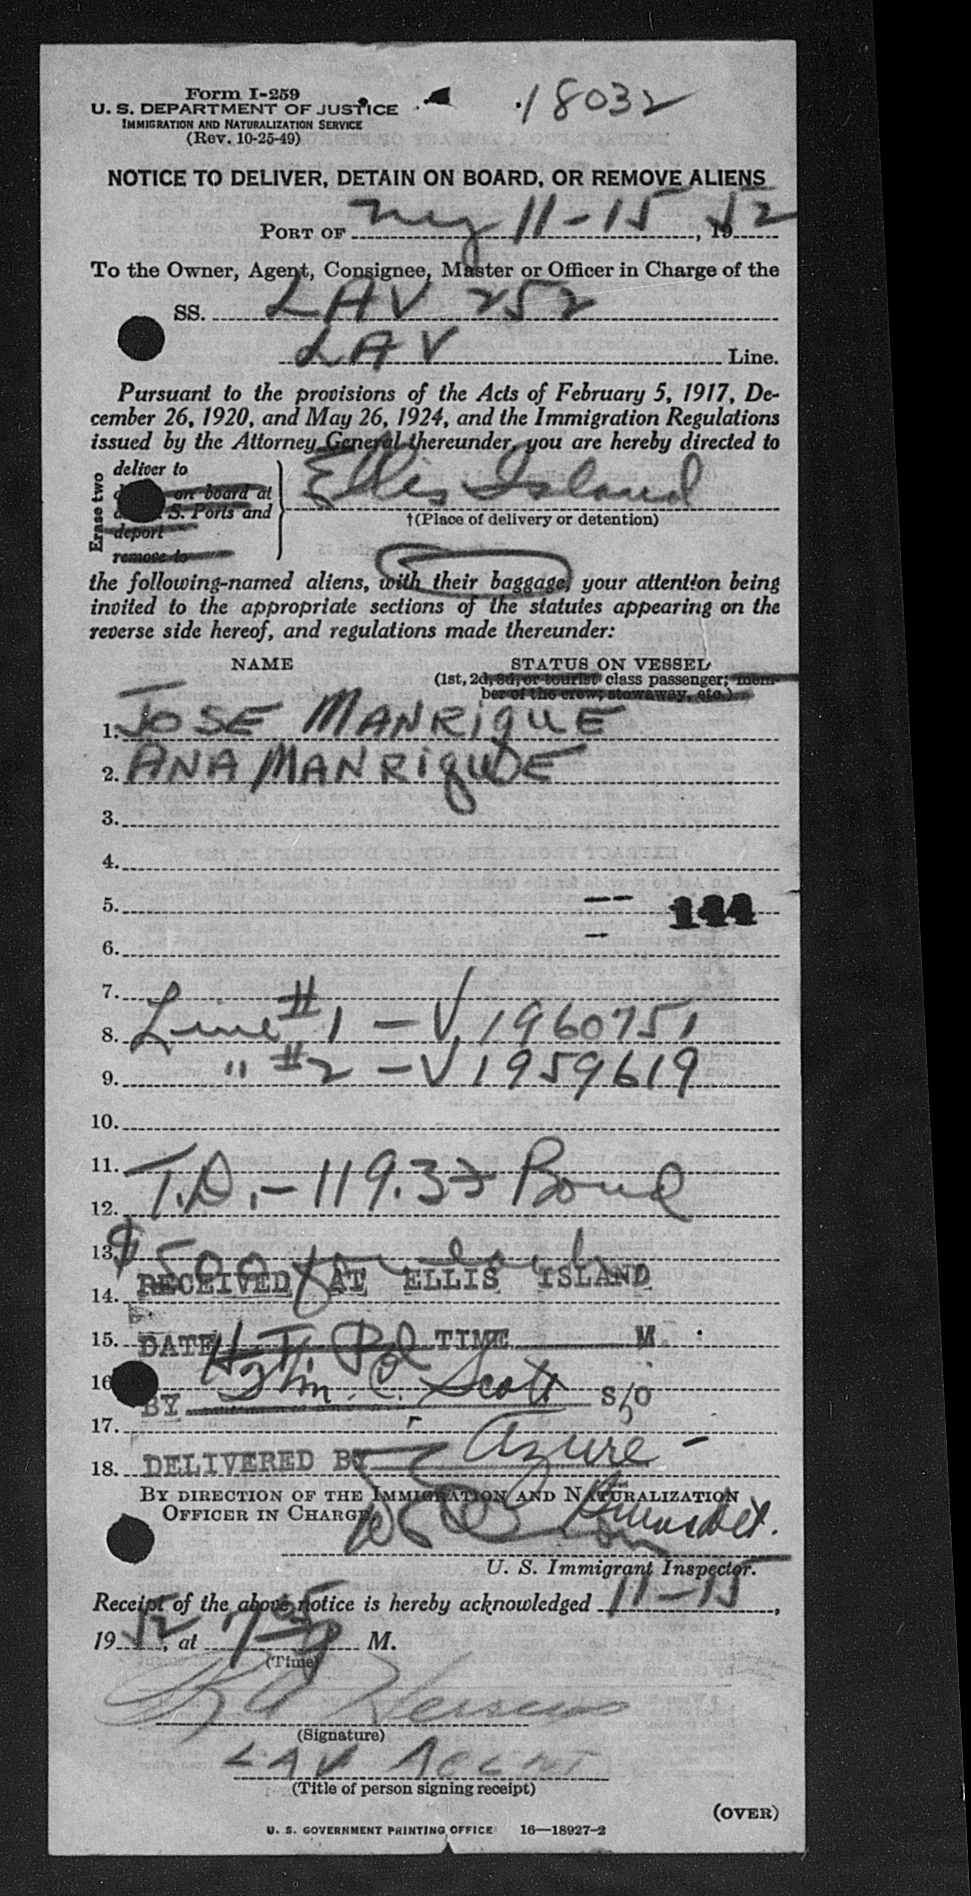 Form I-259
U. S. DEPARTMENT OF JUSTICE
IMMIGRATION AND NATURALIZATION SERVICE
(Rev. 10-25-49)
18032
NOTICE TO DELIVER, DETAIN ON BOARD, OR REMOVE ALIENS
PORT OF NY 11-15, 1952
To the Owner, Agent, Consignee, Master or Officer in Charge of the
SS. LAV 252
LAV Line.
Pursuant to the provisions of the Acts of February 5, 1917, De-
cember 26, 1920, and May 26, 1924, and the Immigration Regulations
issued by the Attorney General thereunder, you are hereby directed to
Erase two
deliver to
on board at
S. Ports and
deport
remove to
Ellis Island
†(Place of delivery or detention)
the following-named aliens, with their baggage, your attention being
invited to the appropriate sections of the statutes appearing on the
reverse side hereof, and regulations made thereunder:
NAME STATUS ON VESSEL
(1st, 2d, 3d, or tourist class passenger; mem-
ber of the crew; stowaway, etc.)
1. JOSE MANRIQUE
2. ANA MANRIQUE
3.
4.
5. 144
6.
7.
8. Line #1 - V 1960751
9. " #2 - V 1959619
10.
11.
12. T.D. - 119.33 Bond
13. $500 for each
14. RECEIVED AT ELLIS ISLAND
15. DATE TIME M.
16. BY Wm. C. Scott S/O
17.
18. DELIVERED BY Azure
BY DIRECTION OF THE IMMIGRATION AND NATURALIZATION
OFFICER IN CHARGE,
U. S. Immigrant Inspector.
Receipt of the above notice is hereby acknowledged 11-15,
1952, at M.
(Time)
(Signature)
LAV AGENT
(Title of person signing receipt)
(OVER)
U. S. GOVERNMENT PRINTING OFFICE 16—18927-2